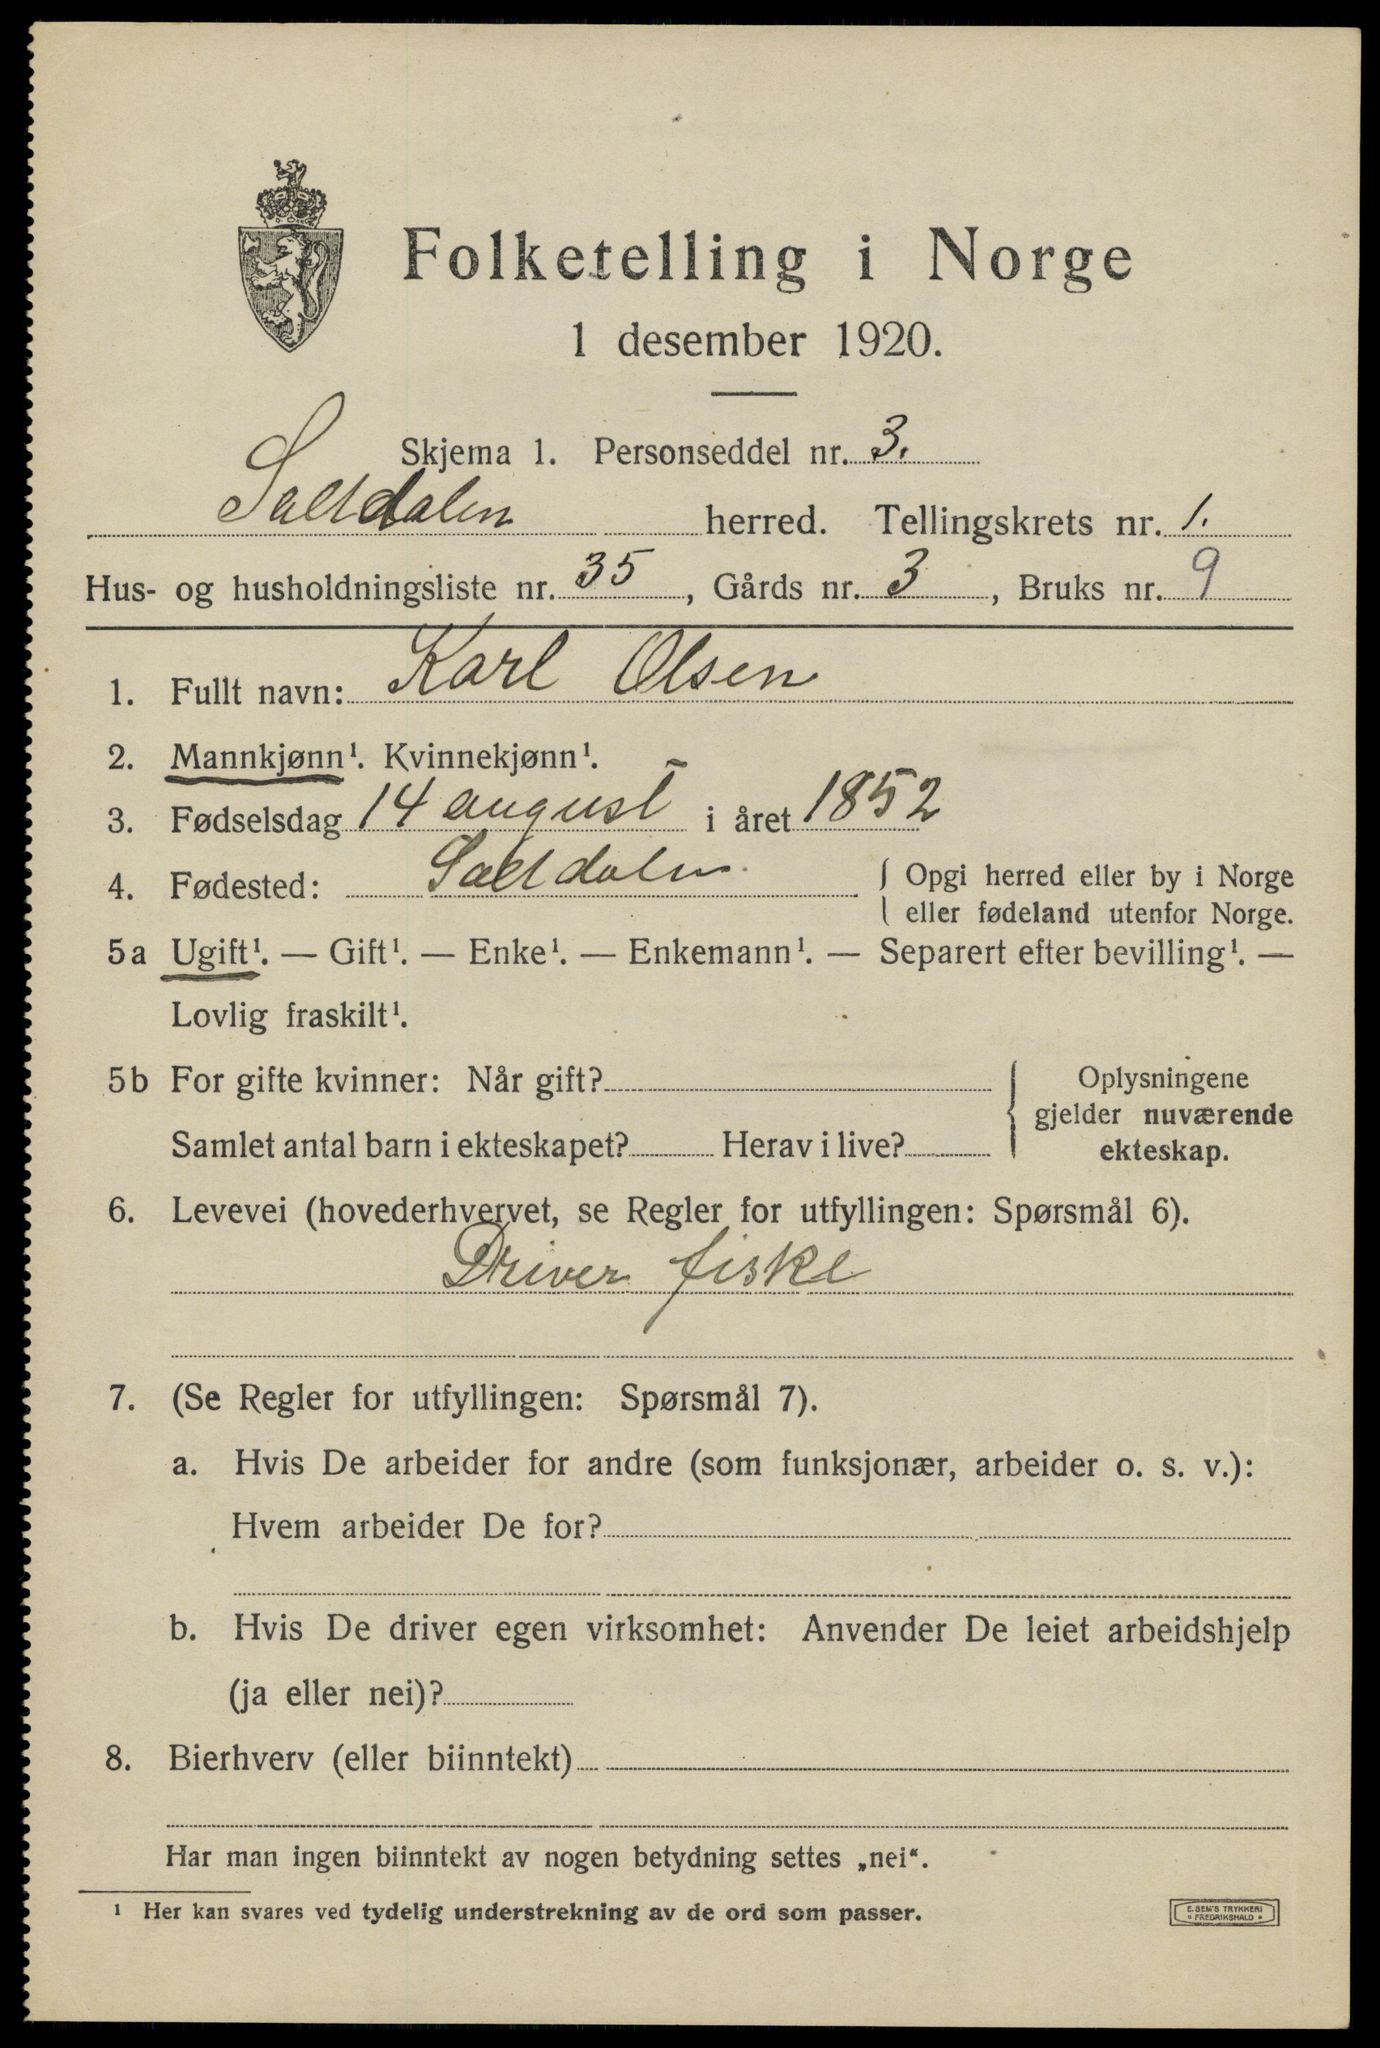 Folketelling i Norge
1 desember 1920.
Skjema 1. Personseddel nr. 3.
Saltdalen herred. Tellingskrets nr. 1.
Hus- og husholdningsliste nr. 35, Gårds nr. 3, Bruks nr. 9
1. Fullt navn: Karl Olsen
2. Mannkjønn¹. Kvinnekjønn¹.
3. Fødselsdag 14 august i året 1852
4. Fødested: Saltdalen { Opgi herred eller by i Norge
eller fødeland utenfor Norge.
5a Ugift¹. — Gift¹. — Enke¹. — Enkemann¹. — Separert efter bevilling¹. —
Lovlig fraskilt¹.
5b For gifte kvinner: Når gift? { Oplysningene
gjelder nuværende
Samlet antal barn i ekteskapet? Herav i live? ekteskap.
6. Levevei (hovederhvervet, se Regler for utfyllingen: Spørsmål 6).
Driver fiske
7. (Se Regler for utfyllingen: Spørsmål 7).
a. Hvis De arbeider for andre (som funksjonær, arbeider o. s. v.):
Hvem arbeider De for?
b. Hvis De driver egen virksomhet: Anvender De leiet arbeidshjelp
(ja eller nei)?
8. Bierhverv (eller biinntekt)
Har man ingen biinntekt av nogen betydning settes „nei“.
¹ Her kan svares ved tydelig understrekning av de ord som passer.
E. SEM'S TRYKKERI
FREDRIKSHALD